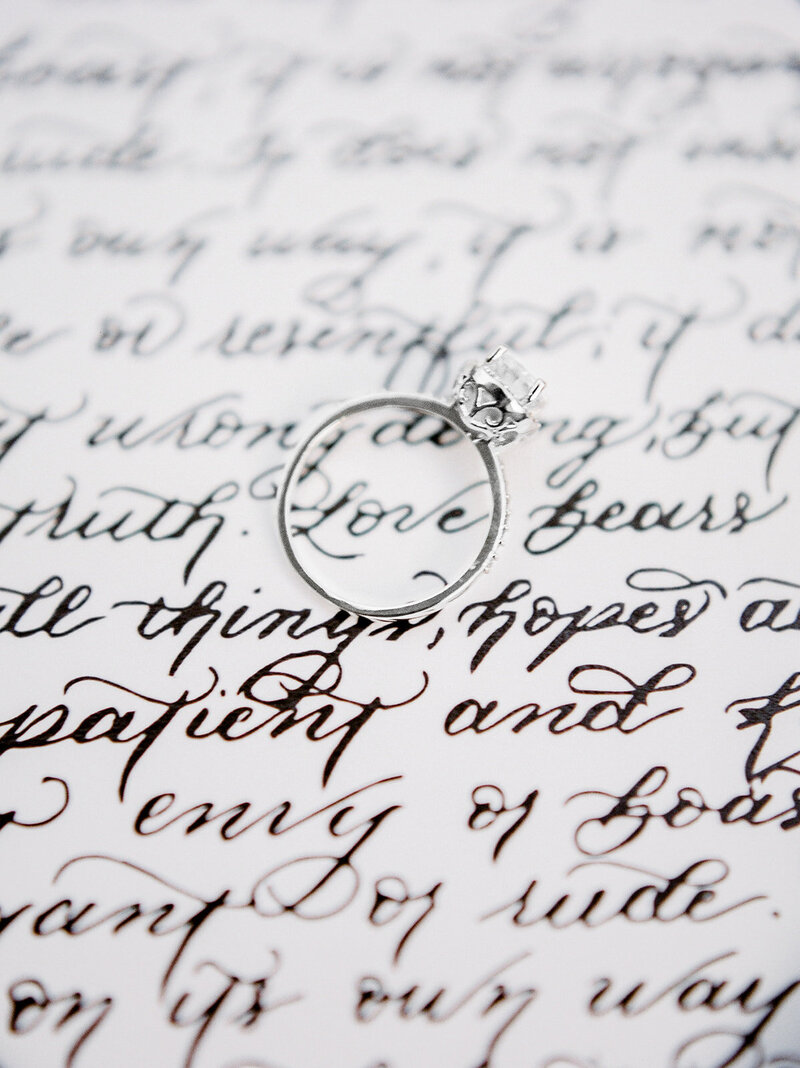 boast; it is not arrogan
rude. It does not insi
s own way, it is not
le or resentful; it do
t wrong doing, but
truth. Love bears
ll things, hopes al
patient and k
envy or boas
gant or rude.
on its own way